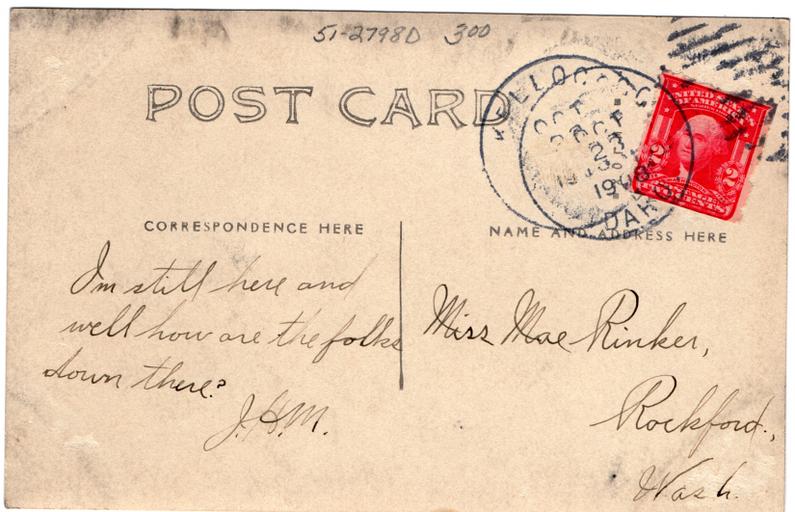 51-2798D 300
POST CARD
KELLOGG
OCT
OCT
23
1908
UNITED STATES
OF AMERICA
2 2
TWO CENTS
CORRESPONDENCE HERE
NAME AND ADDRESS HERE
I'm still here and
well how are the folks
down there?
J.H.M.
Miss Mae Rinker,
Rockford,
Wash.